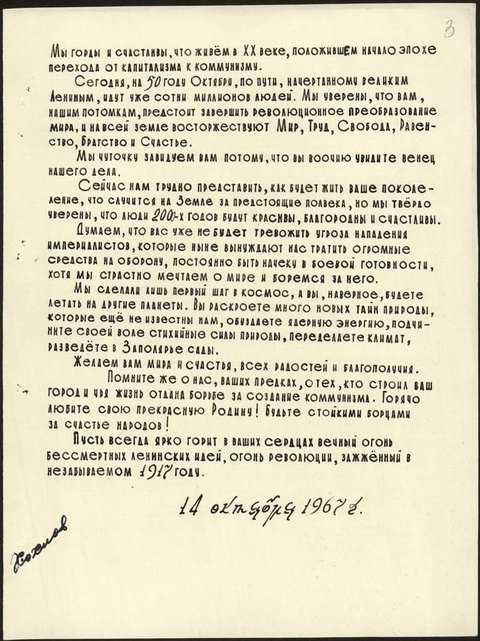 3
Мы горды и счастливы, что живём в XX веке, положившем начало эпохе
перехода от капитализма к коммунизму.
Сегодня, на 50 году Октября, по пути, начертанному великим
Лениным, идут уже сотни миллионов людей. Мы уверены, что вам,
нашим потомкам, предстоит завершить революционное преобразование
мира, и на всей земле восторжествуют Мир, Труд, Свобода, Равен-
ство, Братство и Счастье.
Мы чуточку завидуем вам потому, что вы воочию увидите венец
нашего дела.
Сейчас нам трудно представить, как будет жить ваше поколе-
ление, что случится на Земле за предстоящие полвека, но мы твёрдо
уверены, что люди 200-х годов будут красивы, благородны и счастливы.
Думаем, что вас уже не будет тревожить угроза нападения
империалистов, которые ныне вынуждают нас тратить огромные
средства на оборону, постоянно быть начеку в боевой готовности,
хотя мы страстно мечтаем о мире и боремся за него.
Мы сделали лишь первый шаг в космос, а вы, наверное, будете
летать на другие планеты. Вы раскроете много новых тайн природы,
которые ещё не известны нам, обуздаете ядерную энергию, подчи-
ните своей воле стихийные силы природы, переделаете климат,
разведёте в Заполярье сады.
Желаем вам мира и счастья, всех радостей и благополучия.
Помните же о нас, ваших предках, о тех, кто строил ваш
город и чья жизнь отдана борьбе за создание коммунизма. Горячо
любите свою прекрасную Родину! Будьте стойкими борцами
за счастье народов!
Пусть всегда ярко горит в ваших сердцах вечный огонь
бессмертных ленинских идей, огонь революции, зажжённый в
незабываемом 1917 году.
14 октября 1967 г.